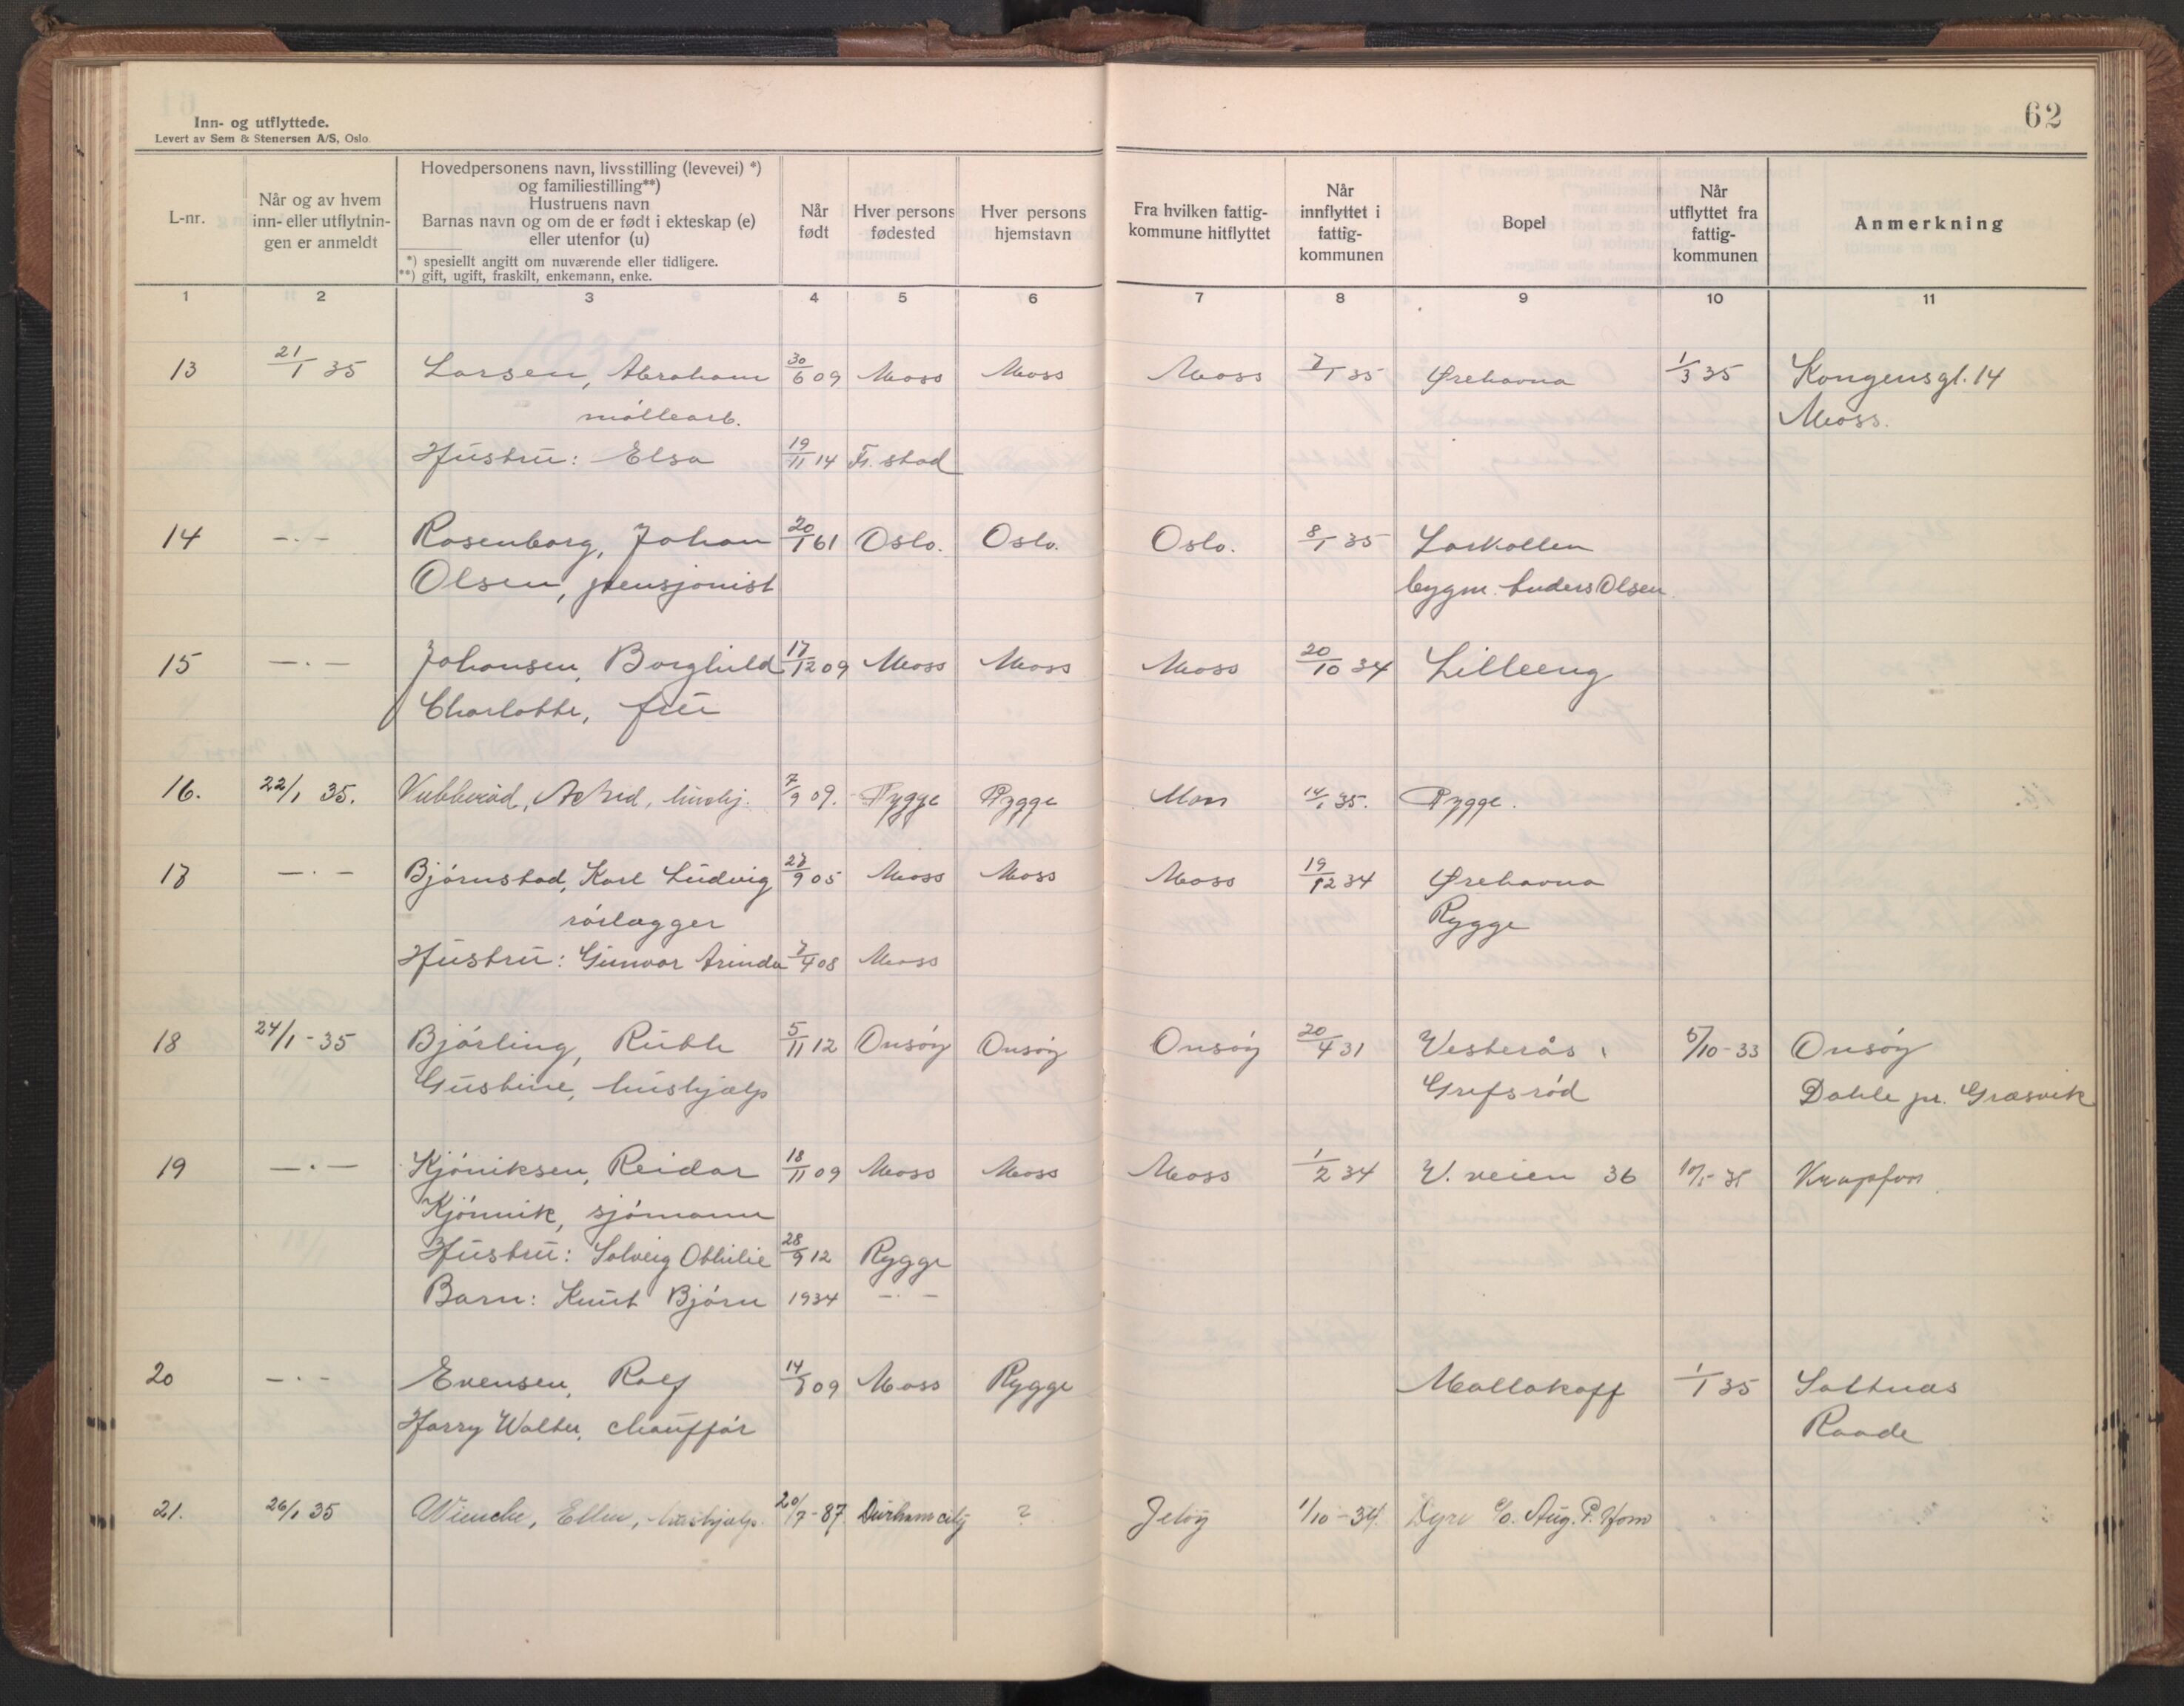 62
Inn- og utflyttede.
Levert av Sem & Stenersen A/S, Oslo.
L-nr.
Når og av hvem inn- eller utflytnin-gen er anmeldt
Hovedpersonens navn, livsstilling (levevei) *)
og familiestilling**)
Hustruens navn
Barnas navn og om de er født i ekteskap (e)
eller utenfor (u)
*) spesiellt angitt om nuværende eller tidligere.
**) gift, ugift, fraskilt, enkemann, enke.
Når født
Hver persons fødested
Hver persons hjemstavn
Fra hvilken fattig-kommune hitflyttet
Når innflyttet i fattig-kommunen
Bopel
Når utflyttet fra fattig-kommunen
Anmerkning
1 2 3 4 5 6 7 8 9 10 11
13 21/1 35 Larsen, Abraham 30/6 09 Moss Moss Moss 7/1 35 Ørehavna 1/3 35 Kongensgt. 14
møllearb. Moss.
Hustru: Elsa 19/11 14 Fr. stad
14 -.- Rosenborg, Johan 20/1 61 Oslo. Oslo. Oslo. 8/1 35 Larkollen
Olsen, pensjonist bygm. Anders Olsen
15 -.- Johansen, Borghild 17/12 09 Moss Moss Moss 20/10 34 Lilleeng
Charlotte, frü
16. 22/1 35. Astrid, hushj. 7/9 09. Rygge Rygge Moss 14/1 35. Rygge.
17 -.- Bjørnstad, Karl Ludvig 27/9 05 Moss Moss Moss 19/12 34 Ørehavna
rørlægger Rygge
Hustru: Gunvor Arinda 7/4 08 Moss
18 24/1-35 Bjørling, Ruth 5/11 12 Onsøy Onsøy Onsøy 20/4 31 Vesterås, 5/10-33 Onsøy
Gustine, hushjælp Grefsrød Dahle pr. Græsvik
19 -.- Kjøniksen, Reidar 18/11 09 Moss Moss Moss 1/2 34 V. veien 36 Krapfoss
Kjønnik, sjømann
Hustru: Solveig Othilie 28/9 12 Rygge
Barn: Knut Bjørn 1934 -.-
20 -.- Evensen, Rolf 09 Moss Rygge Mallakoff 1/1 35 Saltnæs
Harry Walter, chauffør Raade
21. 26/1 35 Wincke, Ellen, hushjælp. 20/7-87. Durham city ? Jeløy 1/10-34. Dyre c/o. Aug. P.